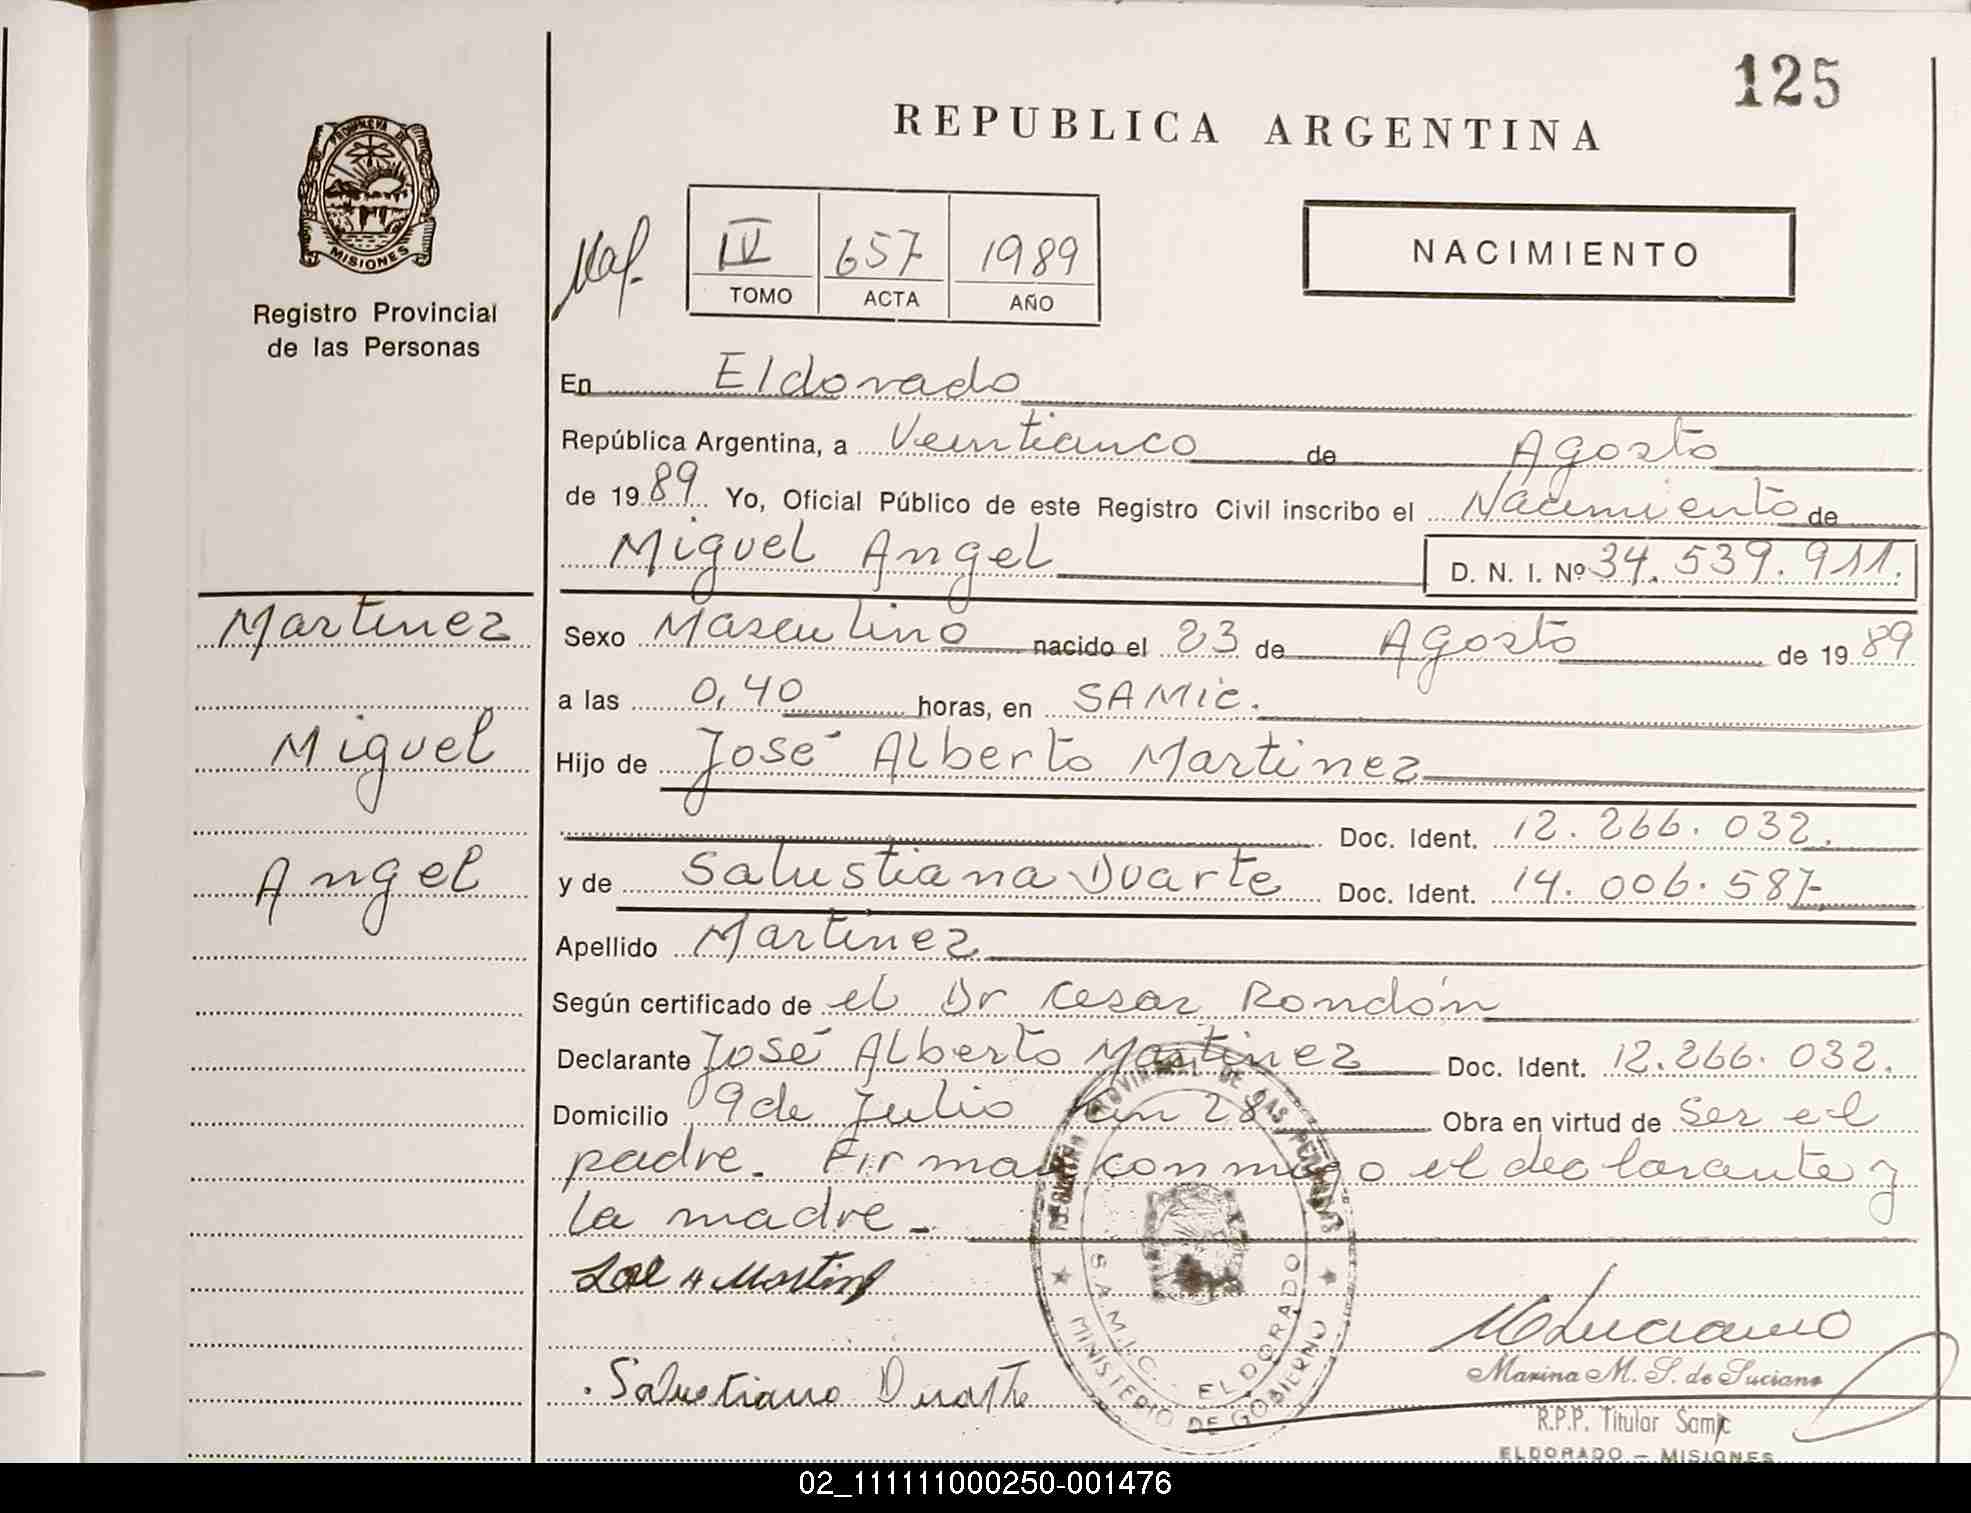 125
REPUBLICA ARGENTINA
PROVINCIA DE MISIONES
Registro Provincial
de las Personas
IV 657 1989
TOMO ACTA AÑO
NACIMIENTO
En Eldorado
República Argentina, a Veinticinco de Agosto
de 1989 Yo, Oficial Público de este Registro Civil inscribo el Nacimiento de
Miguel Angel D. N. I. Nº 34.539.911.
Martinez
Miguel
Angel
Sexo Masculino nacido el 23 de Agosto de 1989
a las 0,40 horas, en SAMic.
Hijo de José Alberto Martinez
Doc. Ident. 12.266.032.
y de Salustiana Duarte Doc. Ident. 14.006.587
Apellido Martinez
Según certificado de el Dr Cesar Rondón
Declarante José Alberto Martinez Doc. Ident. 12.266.032.
Domicilio 9 de Julio Km 28 Obra en virtud de Ser el
padre. Firman conmigo el declarante y
la madre.
Salustiano Duarte
REGISTRO PROVINCIAL DE LAS PERSONAS
S.A.M.I.C. ELDORADO
MINISTERIO DE GOBIERNO
MLuciano
Marina M. S. de Luciano
R.P.P. Titular Samic
ELDORADO - MISIONES
02_111111000250-001476